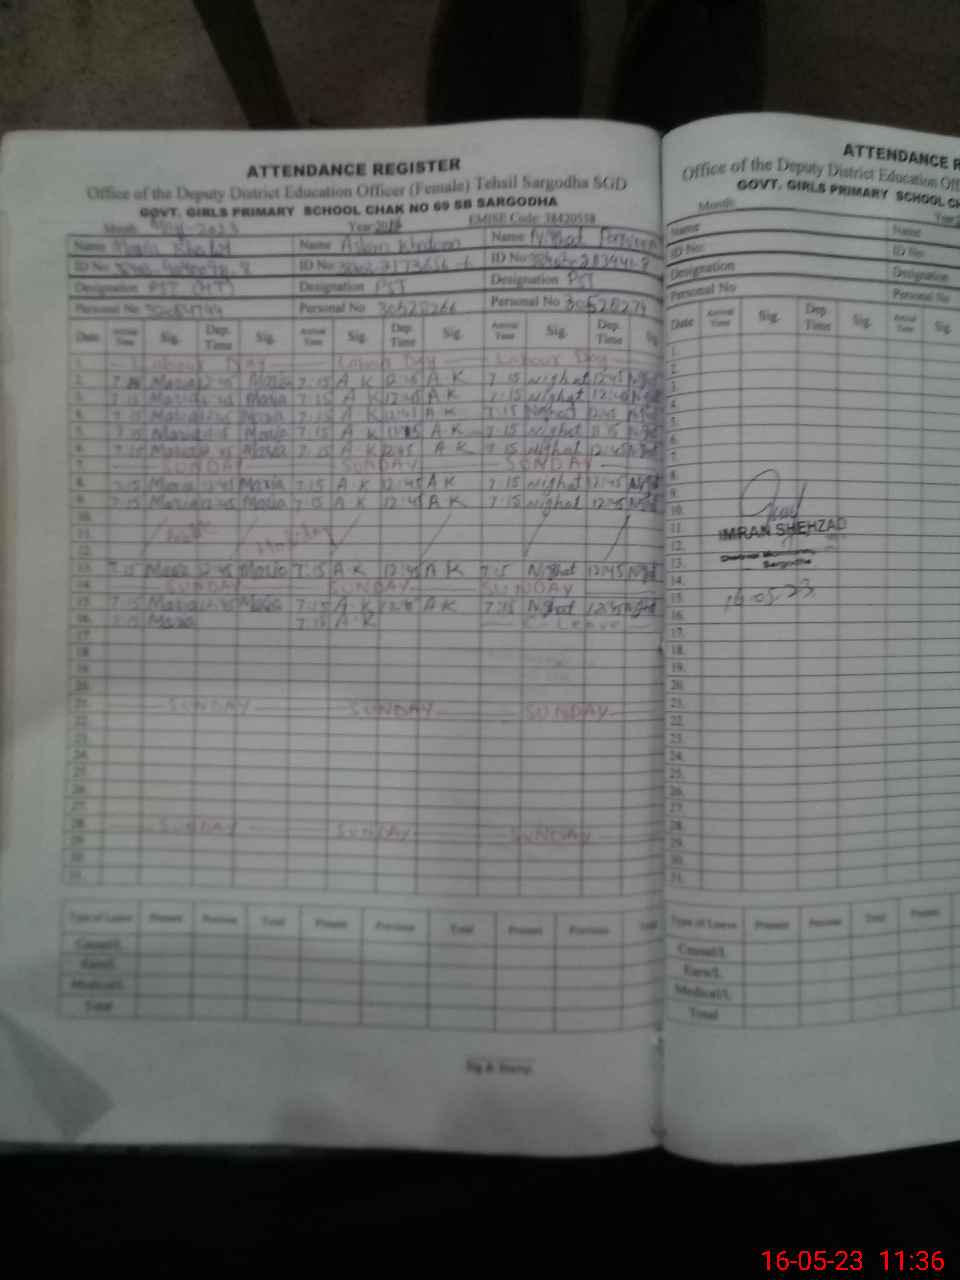 ATTENDANCE REGISTER
Office of the Deputy District Education Officer (Female) Tehsil Sargodha SGD
GOVT. GIRLS PRIMARY SCHOOL CHAK NO 69 SB SARGODHA
Month May-2023 Year 20 EMISE Code: 38420558
Name Name Name
ID No ID No ID No
Designation PST (HT) Designation PST Designation PST
Personal No Personal No 30528266 Personal No 30528279
Date Arrival Time Sig. Dep. Time Sig. Arrival Time Sig. Dep. Time Sig. Arrival Time Sig. Dep. Time Sig.
1. Labour Day Labour Day Labour Day
2. 7:15 Maria 12:45 Maria 7:15 A K 12:45 A K 7:15 Nighat 12:45
3. 7:15 Maria 12:45 Maria 7:15 A K 12:45 A K 7:15 Nighat 12:45
4. 7:15 Maria 12:45 7:15 A K 12:45 A K 7:15 Nighat 12:45
5. 7:15 Maria Maria 7:15 A K A K 7:15 Nighat
6. 7:15 Maria 12:45 Maria 7:15 A K 12:45 A K 7:15 Nighat 12:45
7. SUNDAY SUNDAY SUNDAY
8. 7:15 Maria 12:45 Maria 7:15 A K 12:45 A K 7:15 Nighat 12:45
9. 7:15 Maria 12:45 Maria 7:15 A K 12:45 A K 7:15 Nighat 12:45
10.
11. Holiday
12.
13. 7:15 Maria 12:45 Maria 7:15 A K 12:45 A K 7:15 Nighat 12:45
14. SUNDAY SUNDAY SUNDAY
15. 7:15 Maria 12:45 Maria 7:15 A K 12:45 A K 7:15 Nighat 12:45
16. 7:15 Maria 7:15 A K Leave
17.
18.
19.
20.
21. SUNDAY SUNDAY SUNDAY
22.
23.
24.
25.
26.
27.
28. SUNDAY SUNDAY SUNDAY
29.
30.
31.
Type of Leave Present Previous Total Present Previous Total Present Previous Total
Casual/L
Earn/L
Medical/L
Total
Sig & Stamp
ATTENDANCE R
Office of the Deputy District Education Off
GOVT. GIRLS PRIMARY SCHOOL C
Month
Name Name
ID No ID No
Designation Designation
Personal No Personal No
Date Arrival Time Sig. Dep. Time Sig. Arrival Time Sig.
1.
2.
3.
4.
5.
6.
7.
8.
9.
10.
11. IMRAN SHEHZAD
12.
13. Sargodha
14.
15. 16-05-23
16.
17.
18.
19.
20.
21.
22.
23.
24.
25.
26.
27.
28.
29.
30.
31.
Type of Leave Present Previous Total Present
Casual/L
Earn/L
Medical/L
Total
16-05-23 11:36